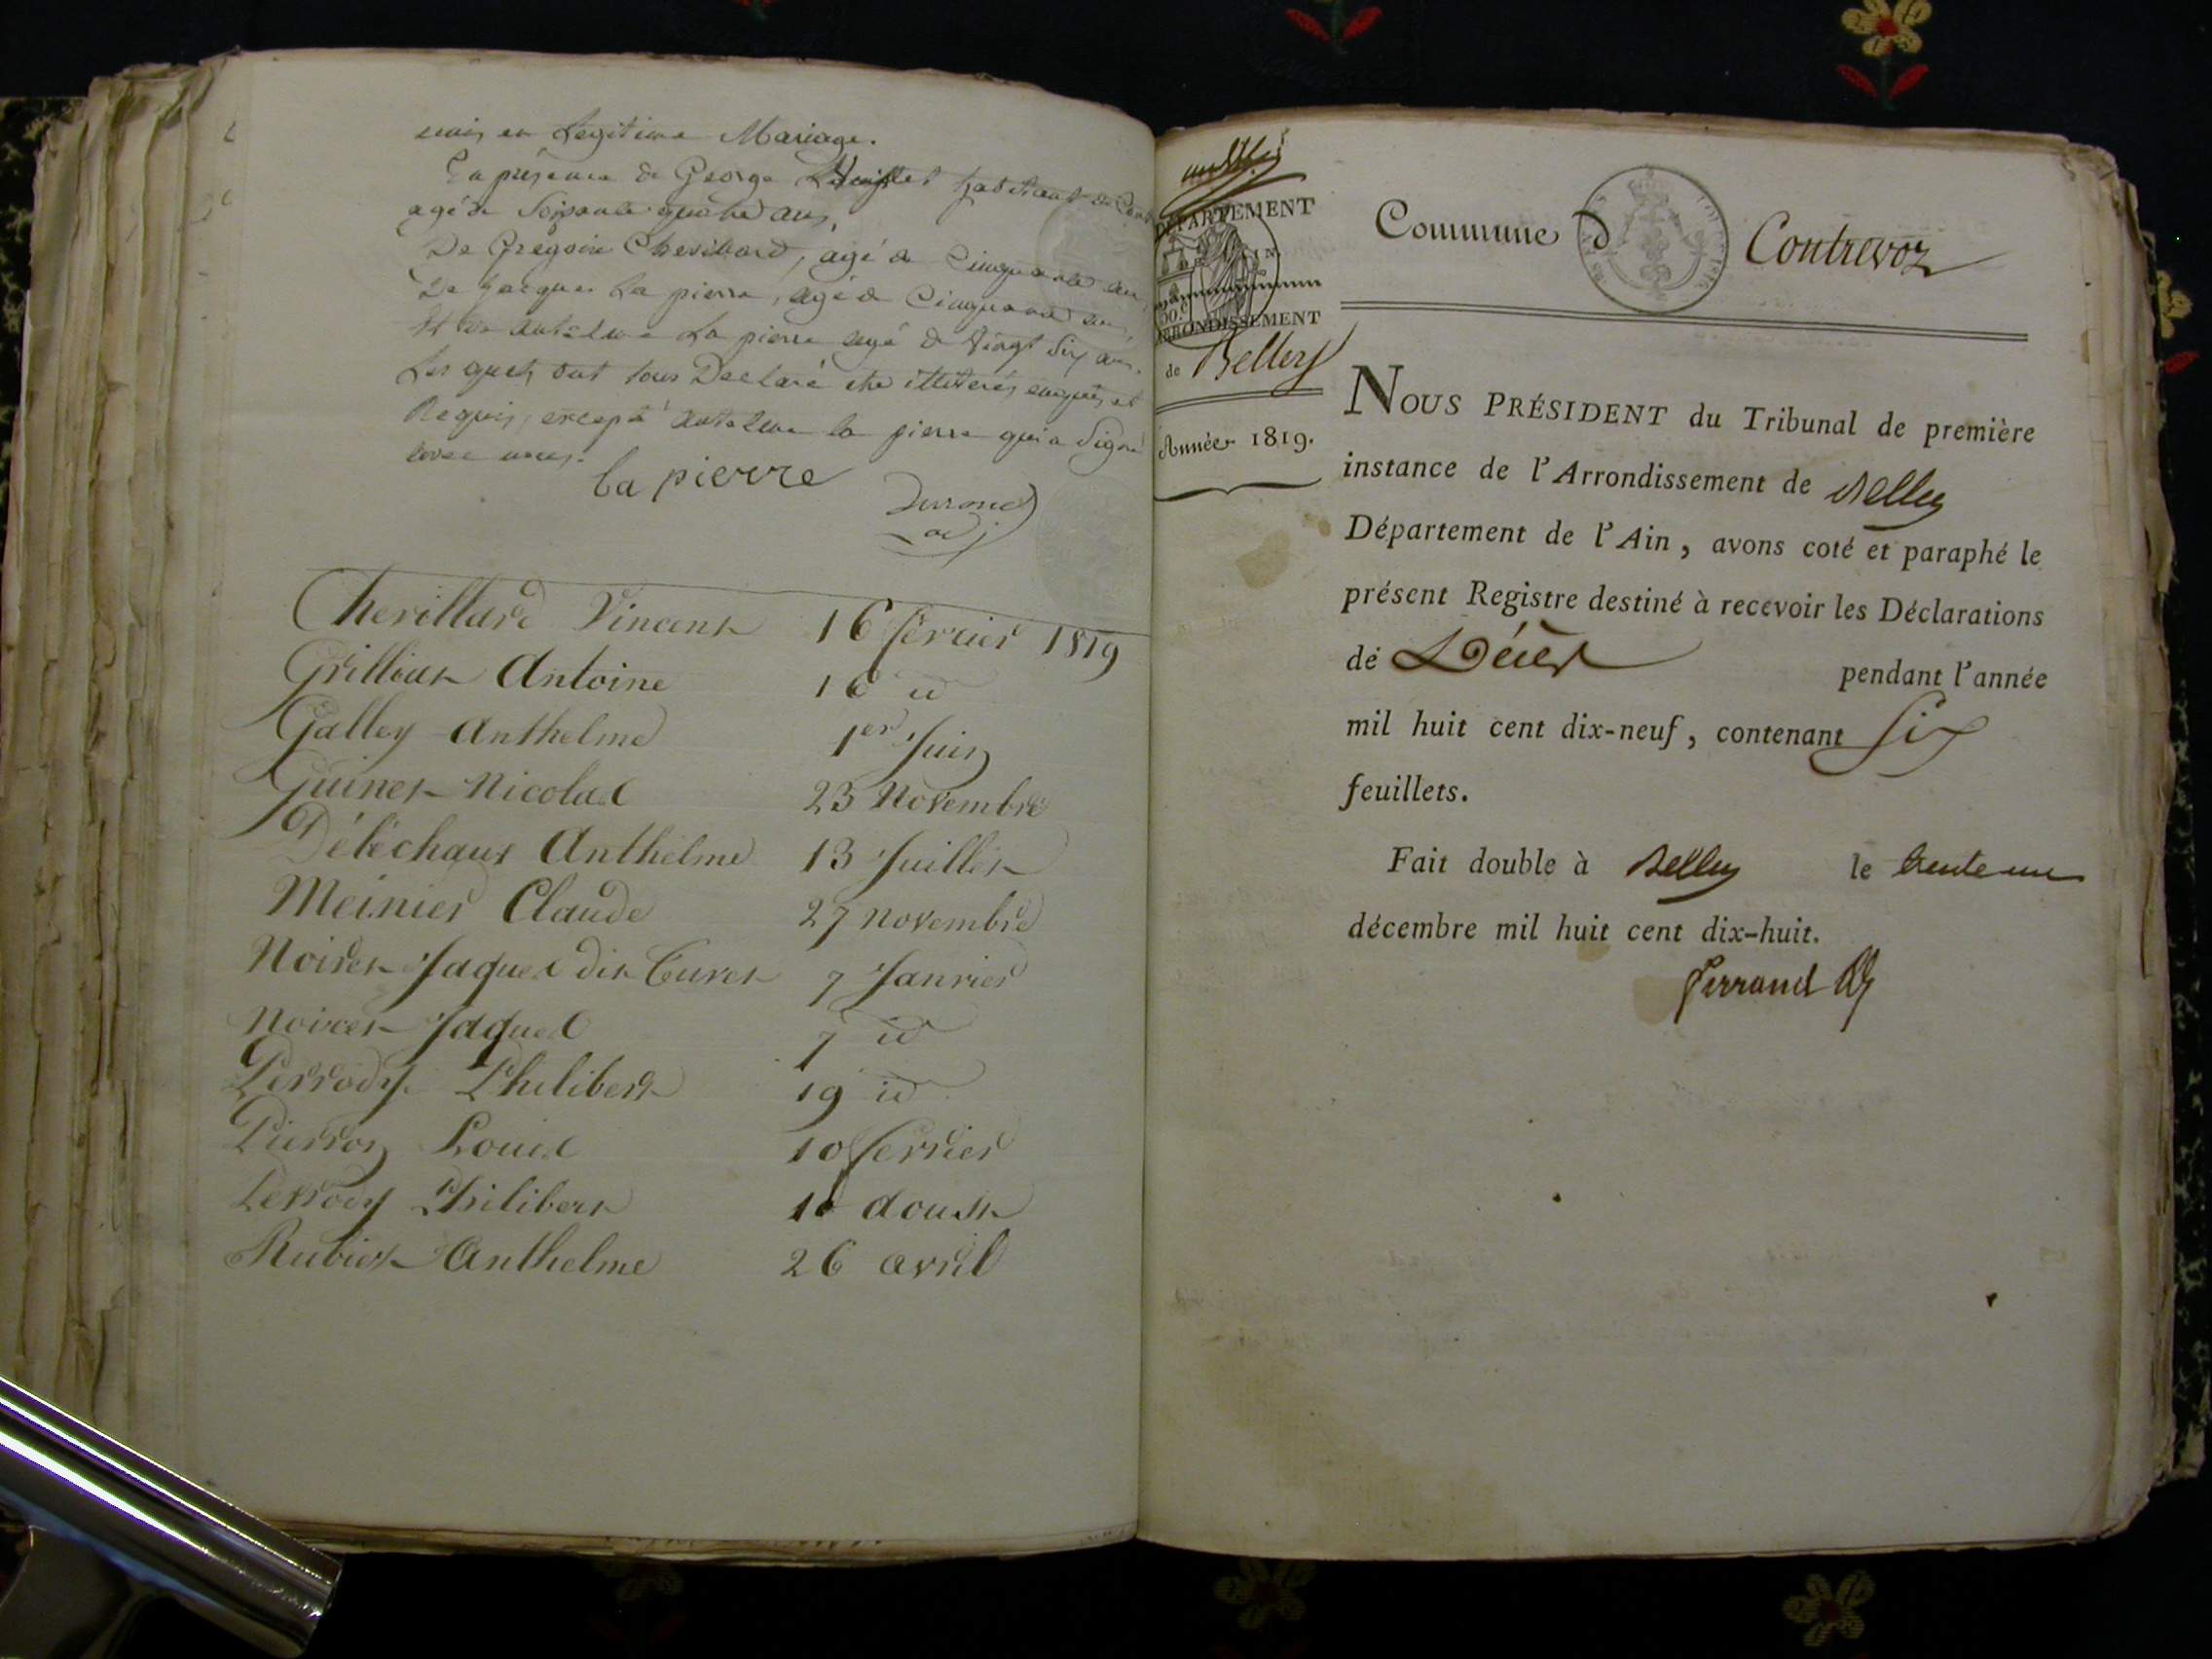 unis en Legitime Mariage.
En présence de George habitant de
agé de Soixante quatre ans,
De Gregoire Chevillard, agé de Cinquante ans
De Jacques La pierre, agé de Cinquante ans,
Et de Antelme La pierre agé de Vingt Six ans.
Les quels ont tous Declaré etre illitterés enquis et
Requis, excepté Antelme la pierre qui a Signé
avec nous.
la pierre
adj
Chevillard Vincent 16 février 1819
Grilliet Antoine 16 id
Galley Anthelme 1er Juin
Guinet Nicolas 23 Novembre
Déléchaux Anthelme 13 Juillet
Meinier Claude 27 novembre
Noiret Jaques dit Curet 7 Janvier
Noiret Jaques 7 id
Perrody Philibert 19 id
Pierron Louis 10 fevrier
Perrody Philibert 10 aoust
Rubiet Anthelme 26 avril
DÉPARTEMENT
AIN
ARRONDISSEMENT
de Belley
Année 1819.
Commune d Contrevoz
NOUS PRÉSIDENT du Tribunal de première
instance de l'Arrondissement de Belley
Département de l'Ain, avons coté et paraphé le
présent Registre destiné à recevoir les Déclarations
de Décès pendant l'année
mil huit cent dix-neuf, contenant Six
feuillets.
Fait double à Belley le trente un
décembre mil huit cent dix-huit.